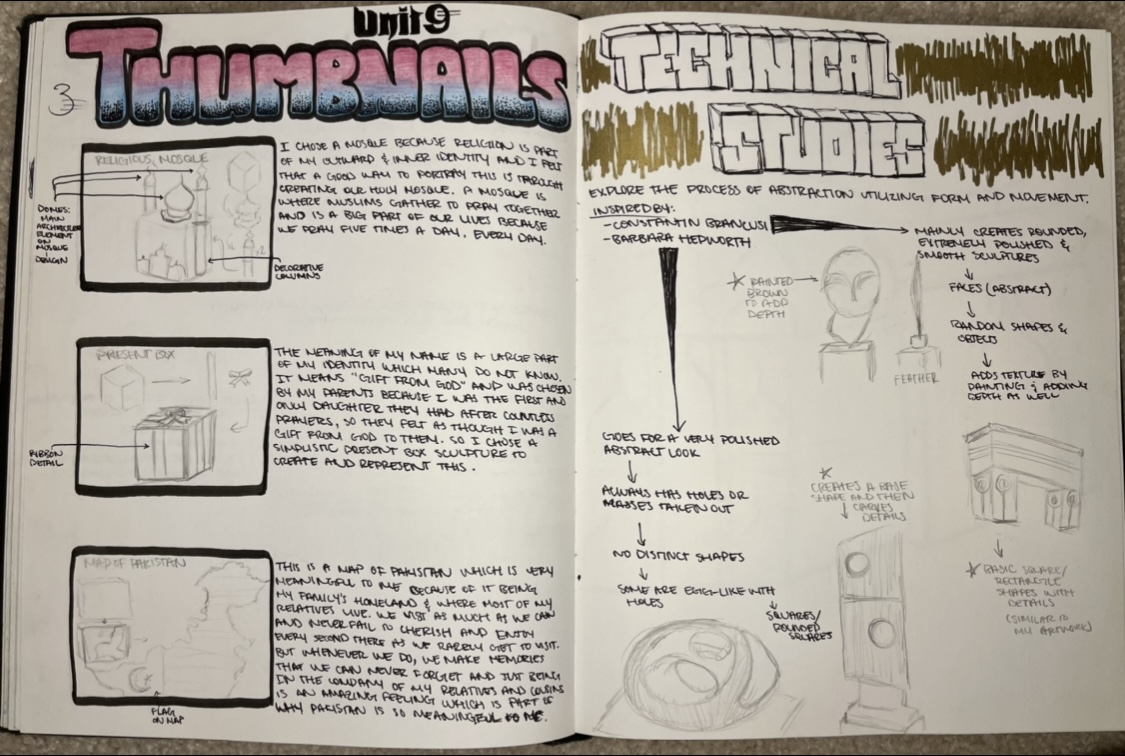 Unit 9
THUMBNAILS
3
RELIGIOUS MOSQUE
DOMES:
MAIN
ARCHITECTURE
ELEMENT
ON
MOSQUE
DESIGN
DECORATIVE
COLUMNS
I CHOSE A MOSQUE BECAUSE RELIGION IS PART
OF MY OUTWARD & INNER IDENTITY AND I FELT
THAT A GOOD WAY TO PORTRAY THIS IS THROUGH
CREATING OUR HOLY MOSQUE. A MOSQUE IS
WHERE MUSLIMS GATHER TO PRAY TOGETHER
AND IS A BIG PART OF OUR LIVES BECAUSE
WE PRAY FIVE TIMES A DAY. EVERY DAY.
PRESENT BOX
RIBBON
DETAIL
THE MEANING OF MY NAME IS A LARGE PART
OF MY IDENTITY WHICH MANY DO NOT KNOW.
IT MEANS "GIFT FROM GOD" AND WAS CHOSEN
BY MY PARENTS BECAUSE I WAS THE FIRST AND
ONLY DAUGHTER THEY HAD AFTER COUNTLESS
PRAYERS, SO THEY FELT AS THOUGH I WAS A
GIFT FROM GOD TO THEM. SO I CHOSE A
SIMPLISTIC PRESENT BOX SCULPTURE TO
CREATE AND REPRESENT THIS.
MAP OF PAKISTAN
FLAG
ON MAP
THIS IS A MAP OF PAKISTAN WHICH IS VERY
MEANINGFUL TO ME BECAUSE OF IT BEING
MY FAMILY'S HOMELAND & WHERE MOST OF MY
RELATIVES LIVE. WE VISIT AS MUCH AS WE CAN
AND NEVER FAIL TO CHERISH AND ENJOY
EVERY SECOND THERE AS WE RARELY GET TO VISIT.
BUT WHENEVER WE DO, WE MAKE MEMORIES
THAT WE CAN NEVER FORGET AND JUST BEING
IN THE COMPANY OF MY RELATIVES AND COUSINS
IS AN AMAZING FEELING WHICH IS PART OF
WHY PAKISTAN IS SO MEANINGFUL TO ME.
TECHNICAL
STUDIES
EXPLORE THE PROCESS OF ABSTRACTION UTILIZING FORM AND MOVEMENT.
INSPIRED BY:
-CONSTANTIN BRANCUSI
-BARBARA HEPWORTH
MAINLY CREATES ROUNDED,
EXTREMELY POLISHED &
SMOOTH SCULPTURES
FACES (ABSTRACT)
RANDOM SHAPES &
OBJECTS
ADDS TEXTURE BY
PAINTING & ADDING
DEPTH AS WELL
PAINTED
BROWN
TO ADD
DEPTH
FEATHER
GOES FOR A VERY POLISHED
ABSTRACT LOOK
ALWAYS HAS HOLES OR
MASSES TAKEN OUT
NO DISTINCT SHAPES
SOME ARE EGG-LIKE WITH
HOLES
SQUARES/
ROUNDED
SQUARES
CREATES A BASE
SHAPE AND THEN
CARVES
DETAILS
BASIC SQUARE/
RECTANGLE
SHAPES WITH
DETAILS
(SIMILAR TO
MY ARTWORK)